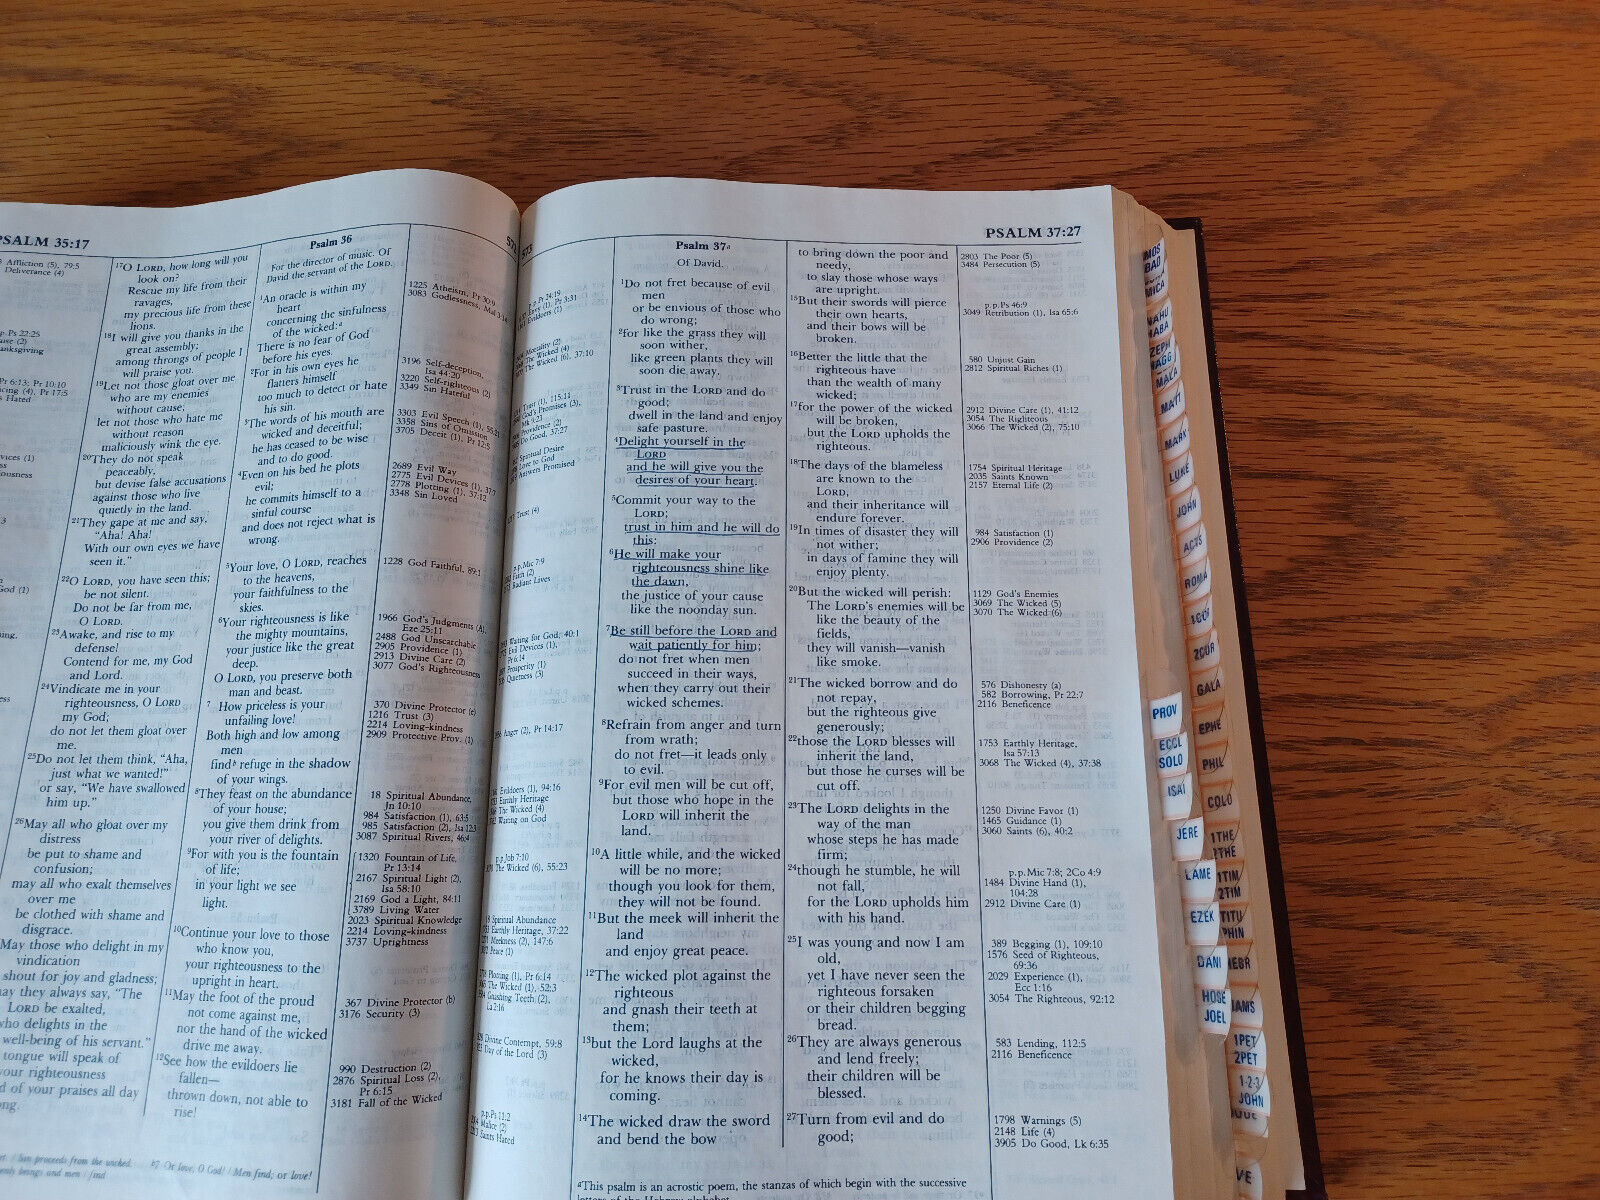 PSALM 35:17
Affliction (5), 79:5
Deliverance (4)
p.p. Ps 22:25
Pr 6:13; Pr 10:10
(4), Pr 17:5
Hated
God (1)
17O LORD, how long will you
look on?
Rescue my life from their
ravages,
my precious life from these
lions.
18I will give you thanks in the
great assembly;
among throngs of people I
will praise you.
19Let not those gloat over me
who are my enemies
without cause;
let not those who hate me
without reason
maliciously wink the eye.
20They do not speak
peaceably,
but devise false accusations
against those who live
quietly in the land.
21They gape at me and say,
"Aha! Aha!
With our own eyes we have
seen it."
22O LORD, you have seen this;
be not silent.
Do not be far from me,
O LORD.
23Awake, and rise to my
defense!
Contend for me, my God
and Lord.
24Vindicate me in your
righteousness, O LORD
my God;
do not let them gloat over
me.
25Do not let them think, "Aha,
just what we wanted!"
or say, "We have swallowed
him up."
26May all who gloat over my
distress
be put to shame and
confusion;
may all who exalt themselves
over me
be clothed with shame and
disgrace.
May those who delight in my
vindication
shout for joy and gladness;
may they always say, "The
LORD be exalted,
who delights in the
well-being of his servant."
tongue will speak of
your righteousness
of your praises all day
Psalm 36
For the director of music. Of
David the servant of the LORD.
1An oracle is within my
heart
concerning the sinfulness
of the wicked:a
There is no fear of God
before his eyes.
2For in his own eyes he
flatters himself
too much to detect or hate
his sin.
3The words of his mouth are
wicked and deceitful;
he has ceased to be wise
and to do good.
4Even on his bed he plots
evil;
he commits himself to a
sinful course
and does not reject what is
wrong.
5Your love, O LORD, reaches
to the heavens,
your faithfulness to the
skies.
6Your righteousness is like
the mighty mountains,
your justice like the great
deep.
O LORD, you preserve both
man and beast.
7 How priceless is your
unfailing love!
Both high and low among
men
findb refuge in the shadow
of your wings.
8They feast on the abundance
of your house;
you give them drink from
your river of delights.
9For with you is the fountain
of life;
in your light we see
light.
10Continue your love to those
who know you,
your righteousness to the
upright in heart.
11May the foot of the proud
not come against me,
nor the hand of the wicked
drive me away.
12See how the evildoers lie
fallen—
thrown down, not able to
rise!
1225 Atheism, Pr 30:9
3083 Godlessness, Mal 3:14
3196 Self-deception,
Isa 44:20
3220 Self-righteous (2)
3349 Sin Hateful
3303 Evil Speech (1), 55:21
3358 Sins of Omission
3705 Deceit (1), Pr 12:5
2689 Evil Way
2775 Evil Devices (1), 37:7
2778 Plotting (1), 37:12
3348 Sin Loved
1228 God Faithful, 89:1
1966 God's Judgments (A),
Eze 25:11
2488 God Unsearchable
2905 Providence (1)
2913 Divine Care (2)
3077 God's Righteousness
370 Divine Protector (e)
1216 Trust (3)
2214 Loving-kindness
2909 Protective Prov. (1)
18 Spiritual Abundance,
Jn 10:10
984 Satisfaction (1), 63:5
985 Satisfaction (2), Isa 12:3
3087 Spiritual Rivers, 46:4
1320 Fountain of Life,
Pr 13:14
2167 Spiritual Light (2),
Isa 58:10
2169 God a Light, 84:11
3789 Living Water
2023 Spiritual Knowledge
2214 Loving-kindness
3737 Uprightness
367 Divine Protector (b)
3176 Security (3)
990 Destruction (2)
2876 Spiritual Loss (2),
Pr 6:15
3181 Fall of the Wicked
b7 Or love, O God! / Men find; or love!
573
PSALM 37:27
p.p. Pr 24:19
Envy (1), Pr 3:31
Evildoers (1)
Mortality (2)
The Wicked (4)
The Wicked (6), 37:10
Trust (1), 115:11
God's Promises (3),
Mk 9:23
Providence (2)
Do Good, 37:27
Spiritual Desire
Love to God
Answers Promised
Trust (4)
p.p. Mic 7:9
Faith (2)
Radiant Lives
Waiting for God, 40:1
Evil Devices (1),
Pr 6:14
Prosperity (1)
Quietness (3)
Anger (2), Pr 14:17
Evildoers (1), 94:16
Earthly Heritage
The Wicked (4)
Waiting on God
p.p. Job 7:10
The Wicked (6), 55:23
Spiritual Abundance
Earthly Heritage, 37:22
Meekness (2), 147:6
Peace (1)
Plotting (1), Pr 6:14
The Wicked (1), 52:3
Gnashing Teeth, (2),
La 2:16
Divine Contempt, 59:8
Day of the Lord (3)
p.p. Ps 11:2
Malice (2)
Saints Hated
Psalm 37a
Of David.
1Do not fret because of evil
men
or be envious of those who
do wrong;
2for like the grass they will
soon wither,
like green plants they will
soon die away.
3Trust in the LORD and do
good;
dwell in the land and enjoy
safe pasture.
4Delight yourself in the
LORD
and he will give you the
desires of your heart.
5Commit your way to the
LORD;
trust in him and he will do
this:
6He will make your
righteousness shine like
the dawn,
the justice of your cause
like the noonday sun.
7Be still before the LORD and
wait patiently for him;
do not fret when men
succeed in their ways,
when they carry out their
wicked schemes.
8Refrain from anger and turn
from wrath;
do not fret—it leads only
to evil.
9For evil men will be cut off,
but those who hope in the
LORD will inherit the
land.
10A little while, and the wicked
will be no more;
though you look for them,
they will not be found.
11But the meek will inherit the
land
and enjoy great peace.
12The wicked plot against the
righteous
and gnash their teeth at
them;
13but the Lord laughs at the
wicked,
for he knows their day is
coming.
14The wicked draw the sword
and bend the bow
to bring down the poor and
needy,
to slay those whose ways
are upright.
15But their swords will pierce
their own hearts,
and their bows will be
broken.
16Better the little that the
righteous have
than the wealth of many
wicked;
17for the power of the wicked
will be broken,
but the LORD upholds the
righteous.
18The days of the blameless
are known to the
LORD,
and their inheritance will
endure forever.
19In times of disaster they will
not wither;
in days of famine they will
enjoy plenty.
20But the wicked will perish:
The LORD's enemies will be
like the beauty of the
fields,
they will vanish—vanish
like smoke.
21The wicked borrow and do
not repay,
but the righteous give
generously;
22those the LORD blesses will
inherit the land,
but those he curses will be
cut off.
23The LORD delights in the
way of the man
whose steps he has made
firm;
24though he stumble, he will
not fall,
for the LORD upholds him
with his hand.
25I was young and now I am
old,
yet I have never seen the
righteous forsaken
or their children begging
bread.
26They are always generous
and lend freely;
their children will be
blessed.
27Turn from evil and do
good;
2803 The Poor (5)
3484 Persecution (5)
p.p. Ps 46:9
3049 Retribution (1), Isa 65:6
580 Unjust Gain
2812 Spiritual Riches (1)
2912 Divine Care (1), 41:12
3054 The Righteous
3066 The Wicked (2), 75:10
1754 Spiritual Heritage
2035 Saints Known
2157 Eternal Life (2)
984 Satisfaction (1)
2906 Providence (2)
1129 God's Enemies
3069 The Wicked (5)
3070 The Wicked (6)
576 Dishonesty (a)
582 Borrowing, Pr 22:7
2116 Beneficence
1753 Earthly Heritage,
Isa 57:13
3068 The Wicked (4), 37:38
1250 Divine Favor (1)
1465 Guidance (1)
3060 Saints (6), 40:2
p.p. Mic 7:8; 2Co 4:9
1484 Divine Hand (1),
104:28
2912 Divine Care (1)
389 Begging (1), 109:10
1576 Seed of Righteous,
69:36
2029 Experience (1),
Ecc 1:16
3054 The Righteous, 92:12
583 Lending, 112:5
2116 Beneficence
1798 Warnings (5)
2148 Life (4)
3905 Do Good, Lk 6:35
aThis psalm is an acrostic poem, the stanzas of which begin with the successive
PROV
ECCL
SOLO
ISAI
JERE
LAME
EZEK
DANI
HOSE
JOEL
MICA
NAHU
HABA
ZEPH
HAGG
MALA
MATT
MARK
LUKE
JOHN
ACTS
ROMA
1COR
2COR
GALA
EPHE
PHIL
COLO
1THE
2THE
1TIM
2TIM
TITU
PHIN
HEBR
JAMS
1PET
2PET
1-2-3
JOHN